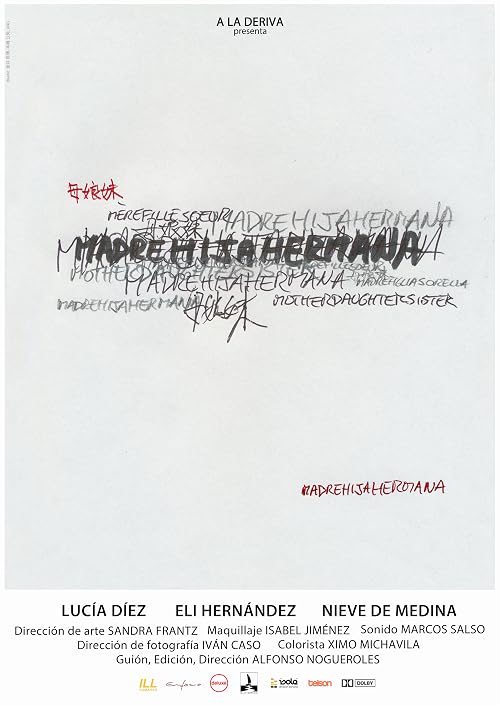 A LA DERIVA
presenta
母娘妹
MEREFILLESOEUR
MADREHIJAHERMANA
MADREHIJAHERMANA
MADREHIJAHERMANA
MADREFIGLIASORELLA
MADREHIJAHERMANA
MOTHERDAUGHTERSISTER
母娘妹
MADREHIJAHERMANA
LUCÍA DÍEZ ELI HERNÁNDEZ NIEVE DE MEDINA
Dirección de arte SANDRA FRANTZ Maquillaje ISABEL JIMÉNEZ Sonido MARCOS SALSO
Dirección de fotografía IVÁN CASO Colorista XIMO MICHAVILA
Guión, Edición, Dirección ALFONSO NOGUEROLES
ILL
deluxe
telson
DOLBY